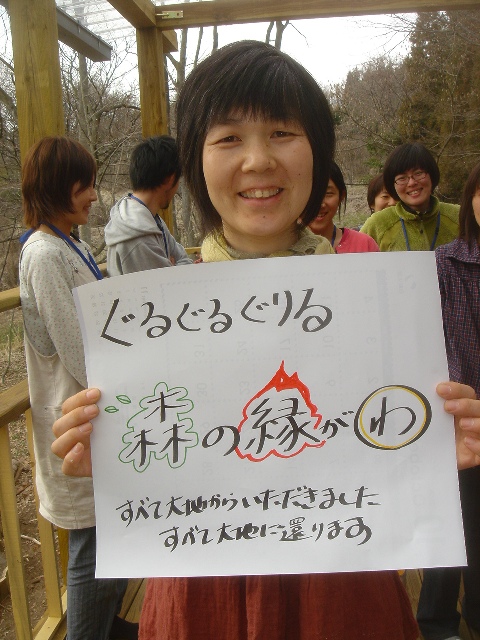 ぐるぐるぐりる
森の縁がわ
すべて大地からいただきました
すべて大地に還ります